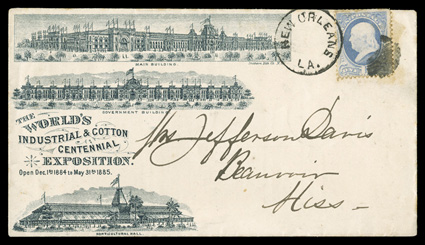 MAIN BUILDING
NEW ORLEANS
LA.
GOVERNMENT BUILDING
THE
WORLD'S
INDUSTRIAL & COTTON
CENTENNIAL
EXPOSITION.
Open Dec. 1st 1884 to May 31st 1885.
HORTICULTURAL HALL
Mrs Jefferson Davis
Beauvoir
Miss-